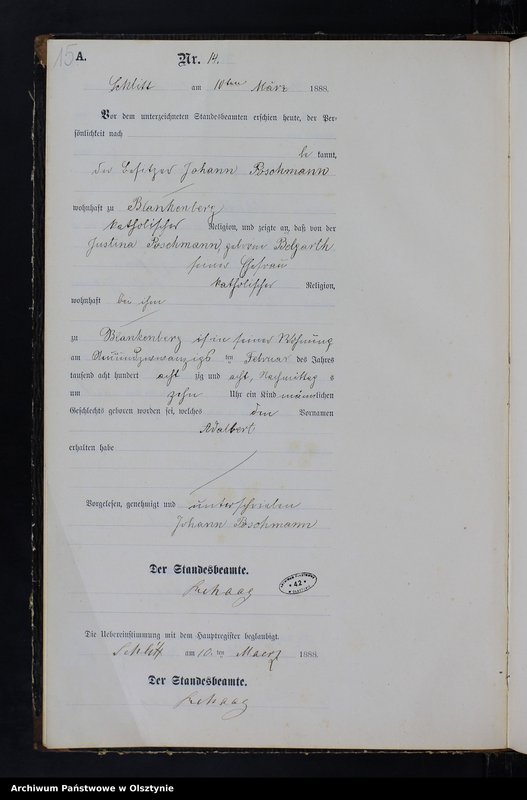 15 A. Nr. 14.
Schlitt am 10ten März 1888.
Vor dem unterzeichneten Standesbeamten erschien heute, der Per-
sönlichkeit nach
be kannt,
der Besitzer Johann Poschmann
wohnhaft zu Blankenberg
katholischer Religion, und zeigte an, daß von der
Justina Poschmann, geborne
seiner Ehefrau
katholischer Religion,
wohnhaft bei ihm
zu Blankenberg in seiner Wohnung
am Neunundzwanzigs ten Februar des Jahres
tausend acht hundert acht zig und acht, Nachmittag s
um zehn Uhr ein Kind männlichen
Geschlechts geboren worden sei, welches den Vornamen
Adalbert
erhalten habe
Vorgelesen, genehmigt und unterschrieben
Johann Poschmann
Der Standesbeamte.
42
Die Uebereinstimmung mit dem Hauptregister beglaubigt.
Schlitt am 10. ten Maerz 1888.
Der Standesbeamte.
Archiwum Państwowe w Olsztynie